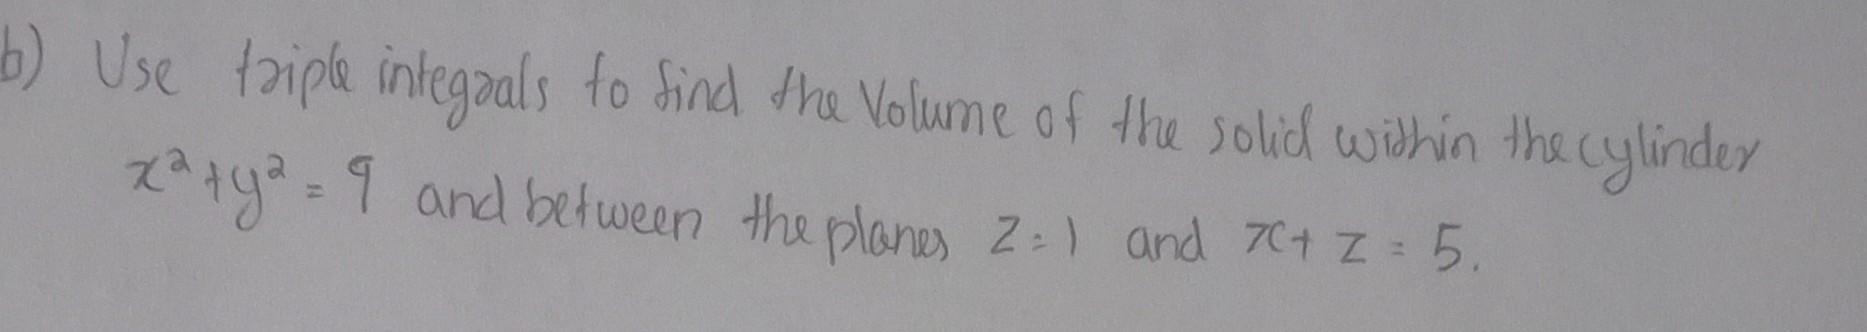 b) Use triple integrals to find the Volume of the solid within the cylinder
x² + y² = 9 and between the planes z = 1 and x + z = 5.